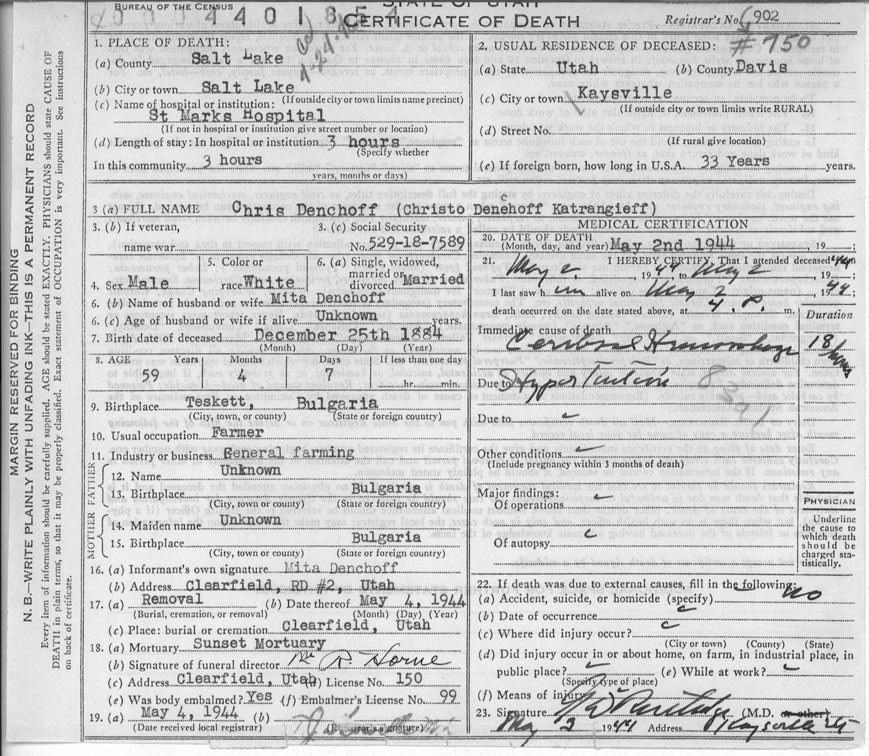 BUREAU OF THE CENSUS
STATE OF UTAH
CERTIFICATE OF DEATH
Registrar's No. 902
#750
4-24-
MARGIN RESERVED FOR BINDING
N. B.—WRITE PLAINLY WITH UNFADING INK—THIS IS A PERMANENT RECORD
Every item of information should be carefully supplied. AGE should be stated EXACTLY. PHYSICIANS should state CAUSE OF
DEATH in plain terms, so that it may be properly classified. Exact statement of OCCUPATION is very important. See instructions
on back of certificate.
1. PLACE OF DEATH:
(a) County Salt Lake
(b) City or town Salt Lake
(If outside city or town limits name precinct)
(c) Name of hospital or institution:
St Marks Hospital
(If not in hospital or institution give street number or location)
(d) Length of stay: In hospital or institution 3 hours
(Specify whether
In this community 3 hours
years, months or days)
2. USUAL RESIDENCE OF DECEASED:
(a) State Utah (b) County Davis
(c) City or town Kaysville
(If outside city or town limits write RURAL)
(d) Street No.
(If rural give location)
(e) If foreign born, how long in U.S.A. 33 Years years.
3 (a) FULL NAME Chris Denchoff (Christo Denchoff Katrangieff)
3. (b) If veteran, name war
3. (c) Social Security No. 529-18-7589
4. Sex Male
5. Color or race White
6. (a) Single, widowed, married or divorced Married
6. (b) Name of husband or wife Mita Denchoff
6. (c) Age of husband or wife if alive Unknown years.
7. Birth date of deceased December 25th 1884
(Month) (Day) (Year)
8. AGE Years Months Days If less than one day
59 4 7 hr. min.
9. Birthplace Teskett, Bulgaria
(City, town, or county) (State or foreign country)
10. Usual occupation Farmer
11. Industry or business General farming
FATHER
12. Name Unknown
13. Birthplace Bulgaria
(City, town, or county) (State or foreign country)
MOTHER
14. Maiden name Unknown
15. Birthplace Bulgaria
(City, town, or county) (State or foreign country)
16. (a) Informant's own signature Mita Denchoff
(b) Address Clearfield, RD #2, Utah
17. (a) Removal (b) Date thereof May 4, 1944
(Burial, cremation, or removal) (Month) (Day) (Year)
(c) Place: burial or cremation Clearfield, Utah
18. (a) Mortuary Sunset Mortuary
(b) Signature of funeral director R Horne
(c) Address Clearfield, Utah (d) License No. 150
(e) Was body embalmed? Yes (f) Embalmer's License No. 99
19. (a) May 4, 1944 (b)
(Date received local registrar) (Registrar's signature)
MEDICAL CERTIFICATION
20. DATE OF DEATH
(Month, day, and year) May 2nd 1944 , 19 ;
21. I HEREBY CERTIFY, That I attended deceased
May 2, 1944 to May 2 44 , 19 ;
I last saw him alive on May 2 , 1944
death occurred on the date stated above, at 4 P. m.
Duration
Immediate cause of death
Cerebral Hemorrhage 18 hours
Due to Hypertention 8391
Due to
Other conditions
(Include pregnancy within 3 months of death)
Major findings:
Of operations
Of autopsy
PHYSICIAN
Underline
the cause to
which death
should be
charged sta-
tistically.
22. If death was due to external causes, fill in the following:
(a) Accident, suicide, or homicide (specify) no
(b) Date of occurrence
(c) Where did injury occur?
(City or town) (County) (State)
(d) Did injury occur in or about home, on farm, in industrial place, in
public place? (e) While at work?
(Specify type of place)
(f) Means of injury
23. Signature (M.D. or other)
May 2 1944 Address Kaysville Ut